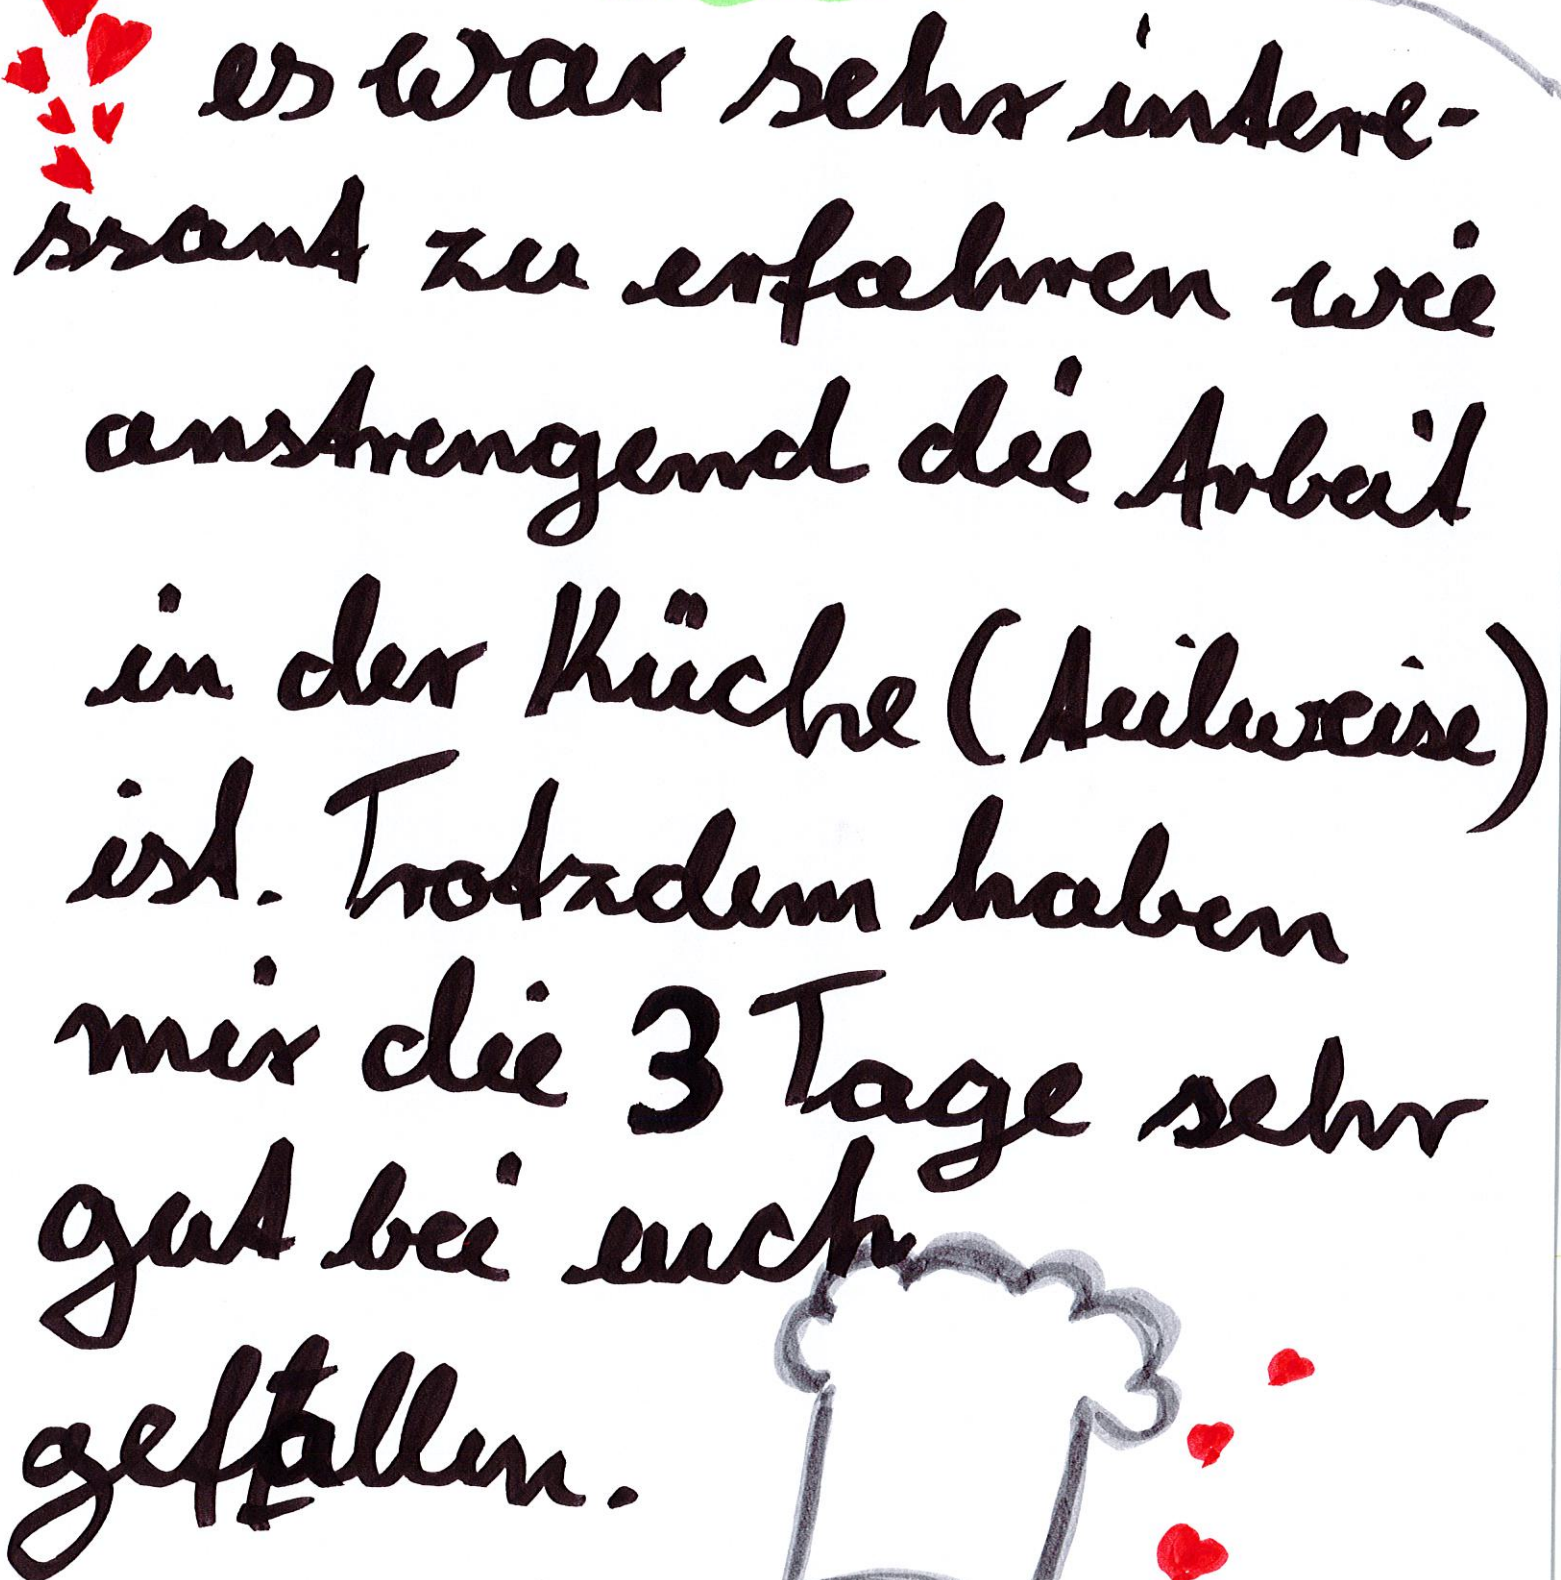 es war sehr intere-
ssant zu erfahren wie
anstrengend die Arbeit
in der Küche (teilweise)
ist. Trotzdem haben
mir die 3 Tage sehr
gut bei euch
gefallen.